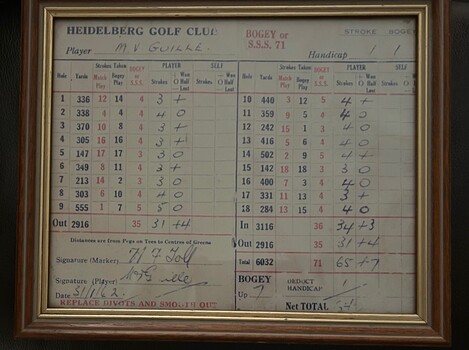 HEIDELBERG GOLF CLUB
BOGEY or S.S.S. 71
STROKE BOGEY
Player M V GUILLE.
Handicap 1 1
Hole Yards Strokes Taken Match Play Bogey Play BOGEY or S.S.S. PLAYER Strokes + Won O Half - Lost SELF Strokes + Won O Half - Lost
1 336 12 14 4 3 +
2 338 4 4 4 4 0
3 370 10 8 4 3 +
4 305 16 16 4 3 +
5 147 17 17 3 3 0
6 349 8 11 4 3 +
7 213 14 2 3 3 0
8 303 6 10 4 4 0
9 555 1 7 5 5 0
Out 2916 35 31 +4
Distances are from Pegs on Tees to Centres of Greens
Signature (Marker)
Signature (Player)
Date 5/1/62.
REPLACE DIVOTS AND SMOOTH OUT
Hole Yards Strokes Taken Match Play Bogey Play BOGEY or S.S.S. PLAYER Strokes + Won O Half - Lost SELF Strokes + Won O Half - Lost
10 440 3 12 5 4 +
11 359 9 5 4 4 0
12 242 15 1 3 4 0
13 416 5 6 4 4 0
14 502 2 9 5 4 +
15 142 18 18 3 3 0
16 400 7 3 4 4 0
17 331 11 13 4 3 +
18 284 13 15 4 4 0
In 3116 36 34 +3
Out 2916 35 31 +4
Total 6032 71 65 +7
BOGEY
Up 7
DEDUCT HANDICAP 1
Net TOTAL